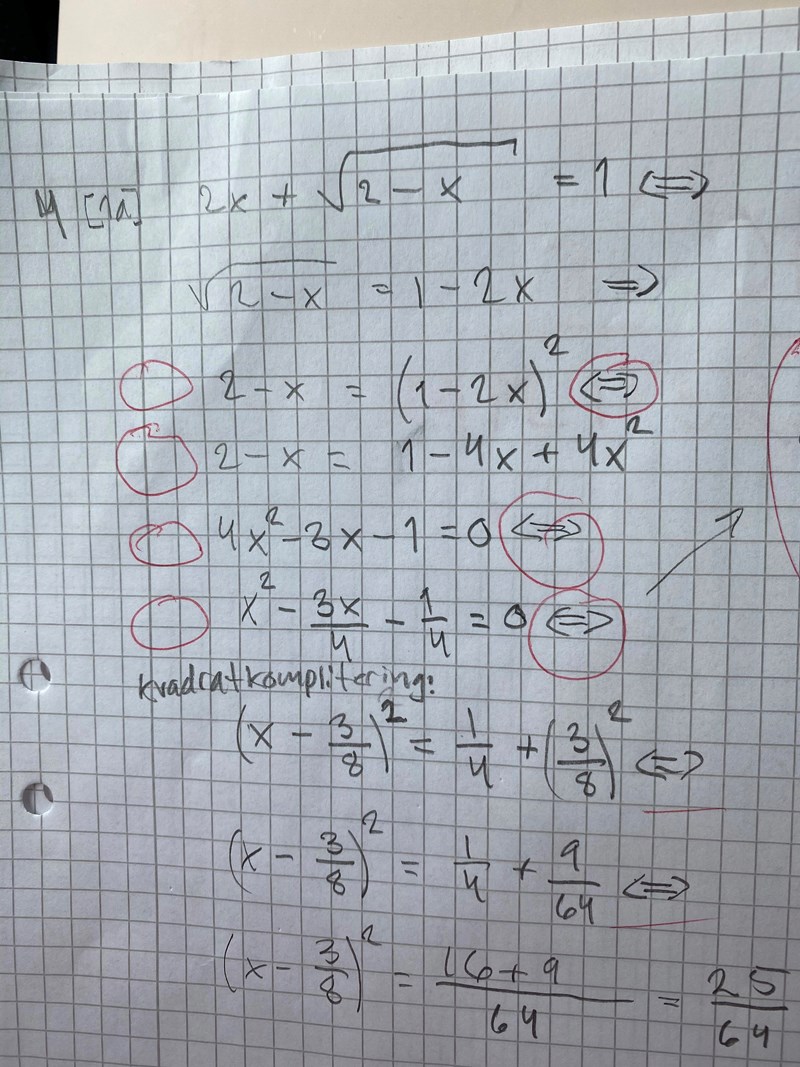 4 [1a] 2x + √(2 - x) = 1 ⇔
√(2 - x) = 1 - 2x ⇒
2 - x = (1 - 2x)² ⇔
2 - x = 1 - 4x + 4x²
4x² - 3x - 1 = 0 ⇔
x² - 3x/4 - 1/4 = 0 ⇔
kvadratkomplitering:
(x - 3/8)² = 1/4 + (3/8)² ⇔
(x - 3/8)² = 1/4 + 9/64 ⇔
(x - 3/8)² = (16 + 9)/64 = 25/64